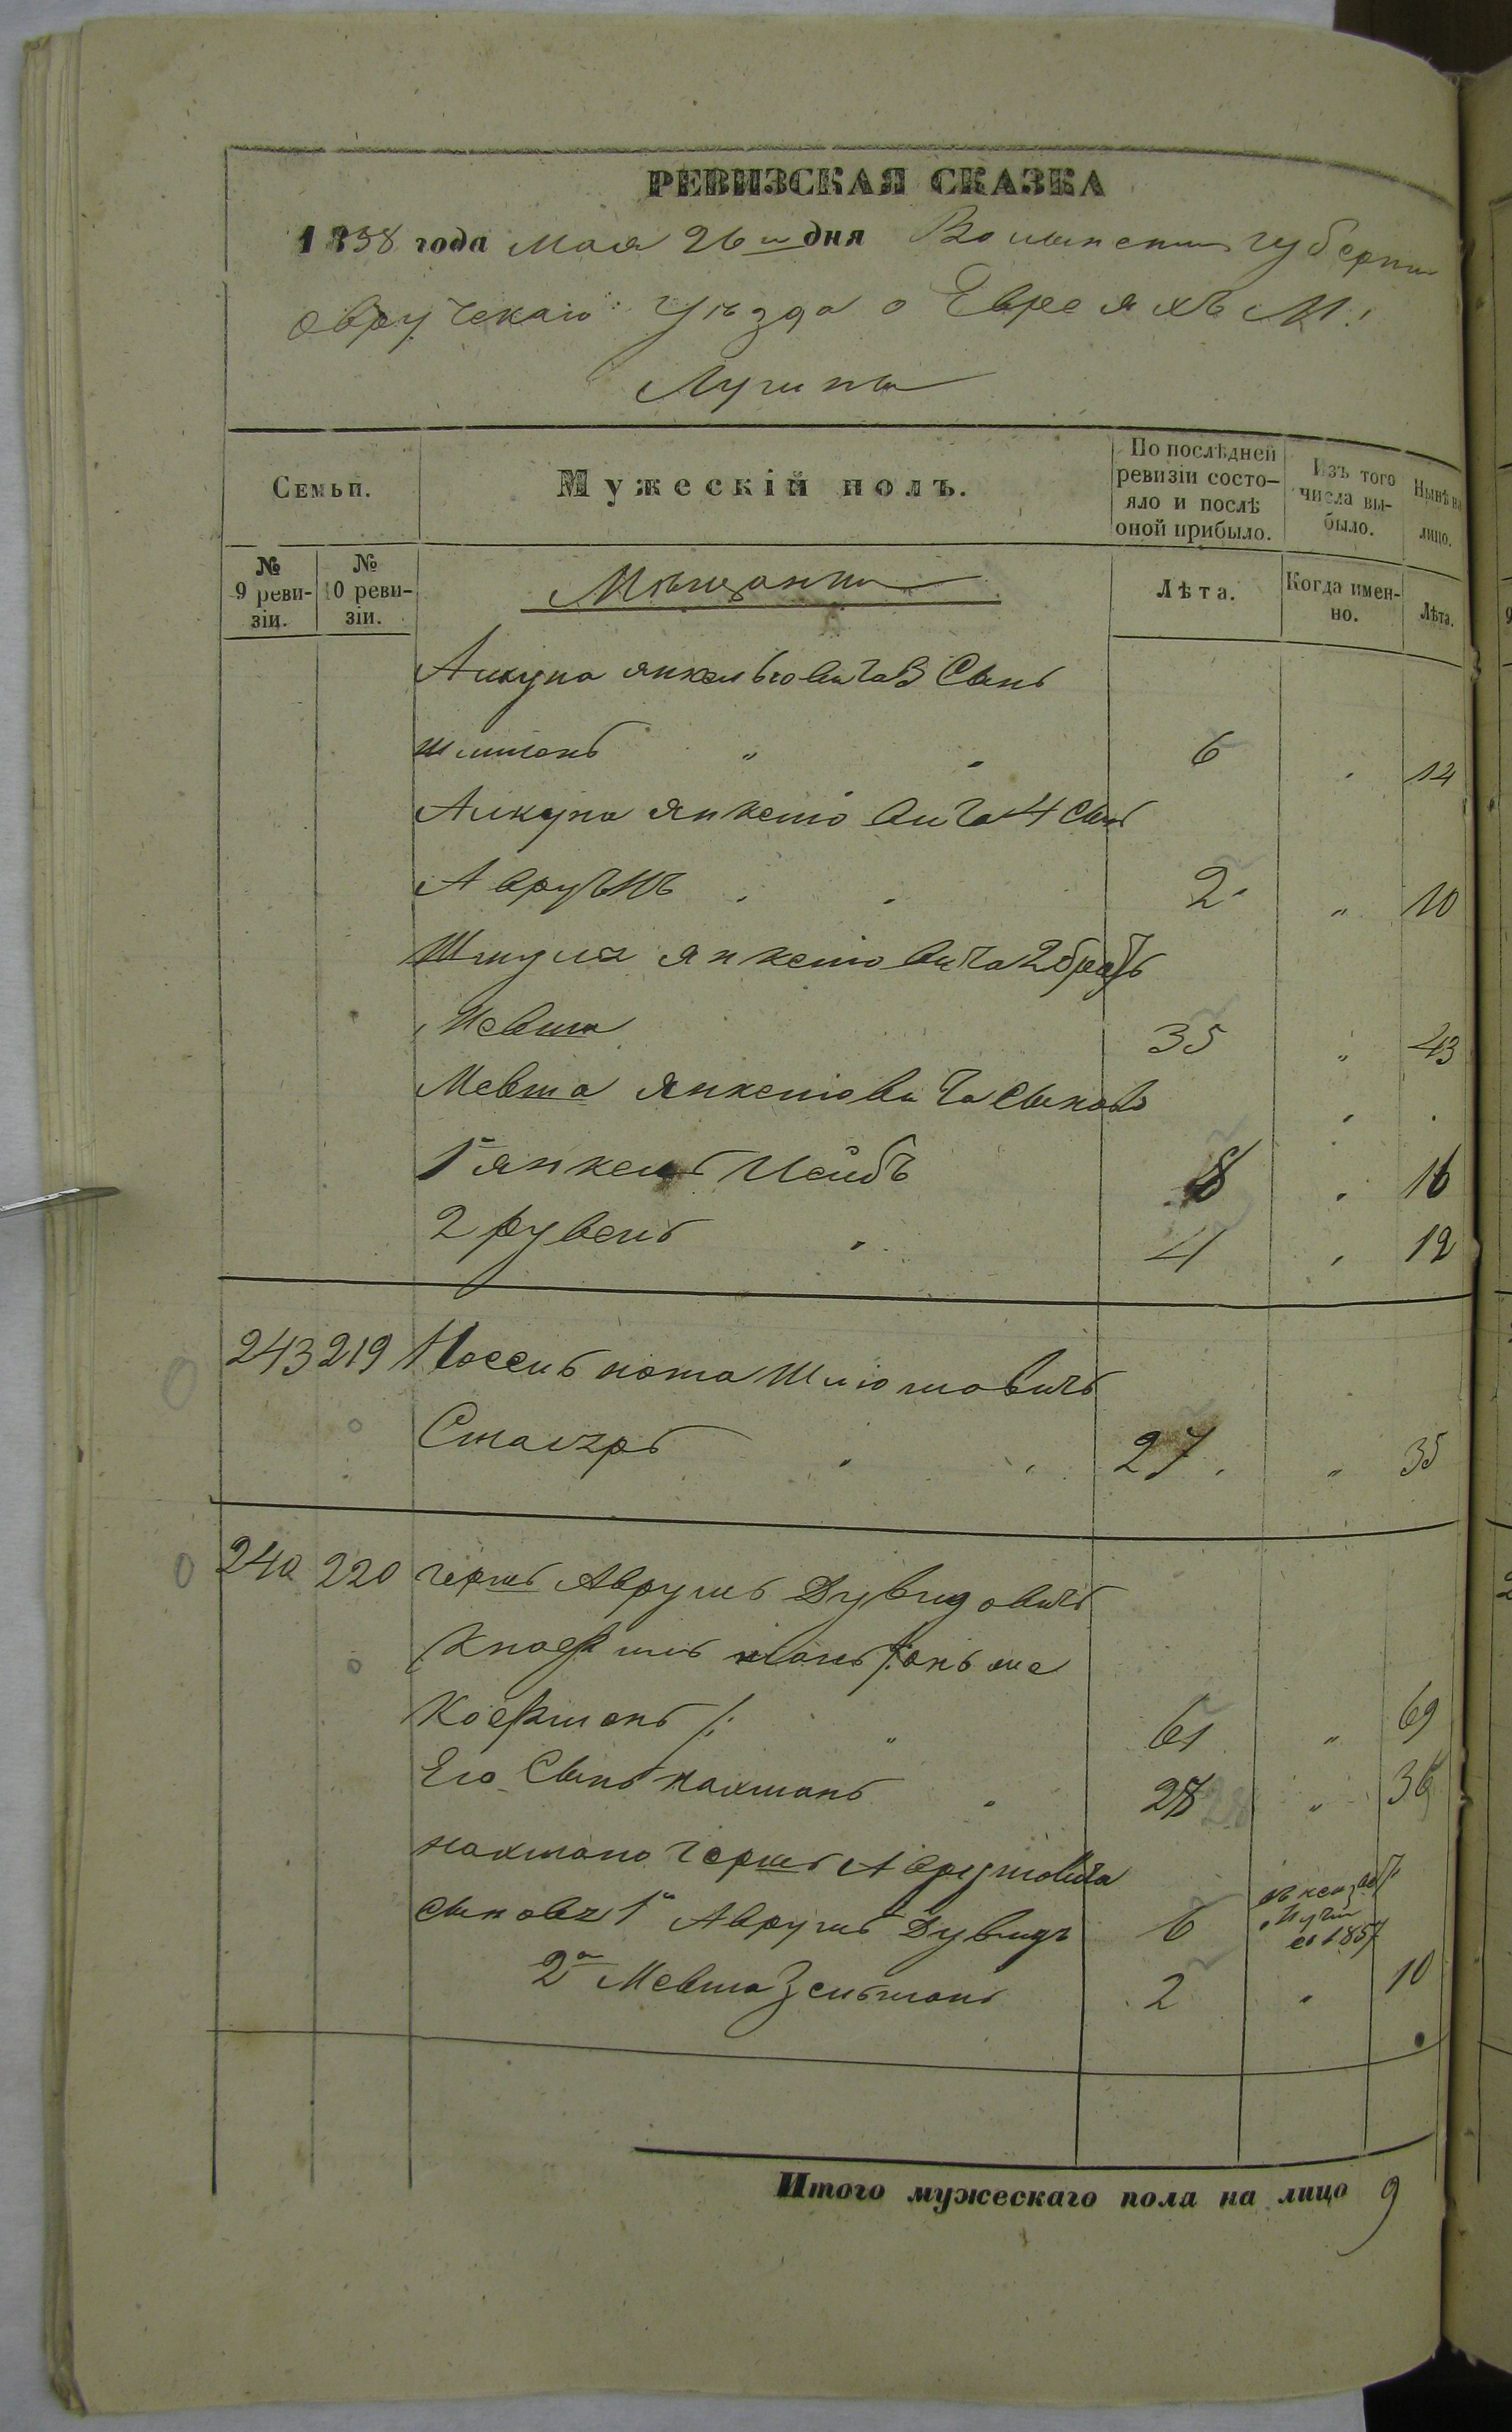 РЕВИЗСКАЯ СКАЗКА
1858 года Мая 26 дня Волынской губернии
Овручскаго Уѣзда о Евреяхъ М:
Лугинъ
Семьи.
Мужескій полъ.
По послѣдней ревизіи состо-
яло и послѣ оной прибыло.
Изъ того числа вы-
было.
Нынѣ на лицо.
№ 9 реви-
зіи.
№ 10 реви-
зіи.
Мѣщанни
Лѣта.
Когда имен-
но.
Лѣта.
Янкельовича 3 Сынъ
Шлиомъ " 6 12
Янкелювича 4 Сынъ
Аврумъ 2 " 10
Шмуля Янкелювича 2 братъ
Мевша 35 " 43
Мевша Янкелювича Сыновъ
1й Янкель Лейбъ 8 16
2 Рувенъ 4 12
243 219 Іосель нота Шлиомовичъ
Столяръ 27 " 35
240 220 Гершъ Аврумъ Дувидовичъ
Койфманъ /: " 61 " 69
Его Сынъ Нахманъ 28 " 36
Нахмана Гершъ Аврумовича
Сыновъ 1й Аврумъ Дувидъ 6 1857
2й Мевша Зельманъ 2 10
Итого мужескаго пола на лицо 9